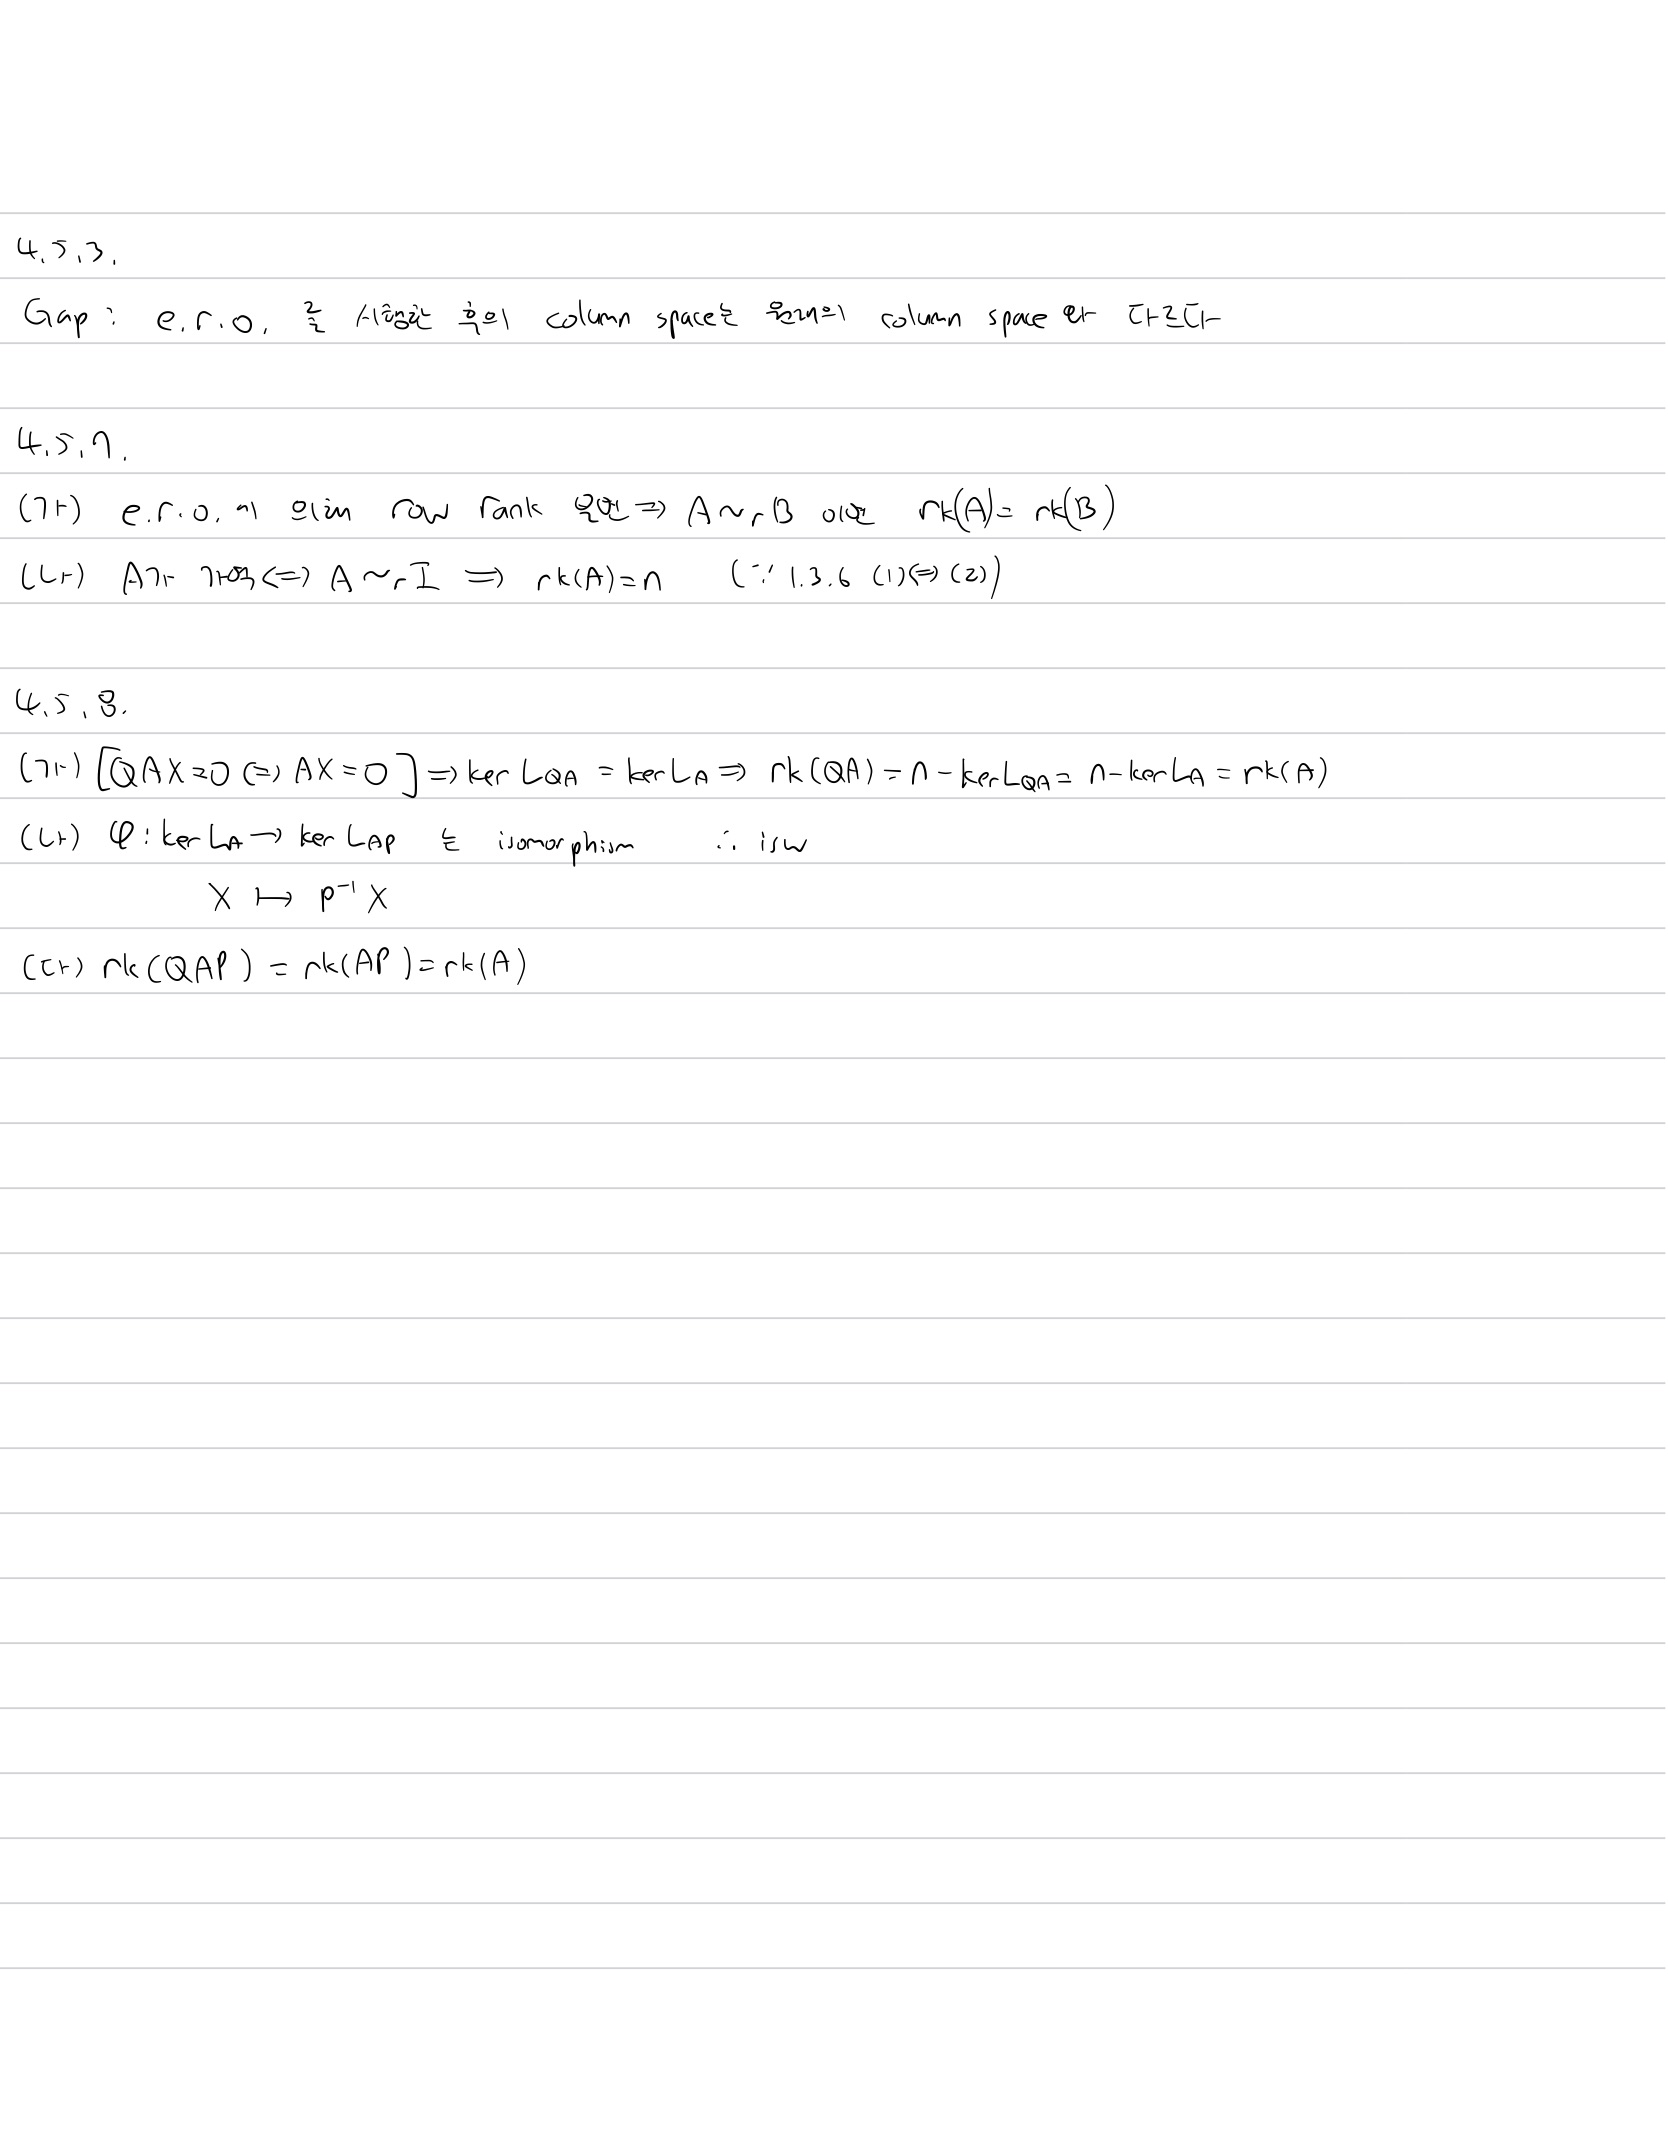 4.5.3.
Gap : e.r.o. 를 시행한 후의 column space는 원래의 column space 와 다르다
4.5.7.
(가) e.r.o. 에 의해 row rank 불변 ⇒ A ~r B 이면 rk(A) = rk(B)
(나) A가 가역 <=> A ~r I ⇒ rk(A) = n (∵ 1.3.6 (1) <=> (2))
4.5.8.
(가) [QAX = 0 <=> AX = 0] ⇒ ker L_QA = ker L_A ⇒ rk(QA) = n - ker L_QA = n - ker L_A = rk(A)
(나) φ : ker L_A → ker L_AP 는 isomorphism ∴ isw
X ↦ P⁻¹X
(다) rk(QAP) = rk(AP) = rk(A)